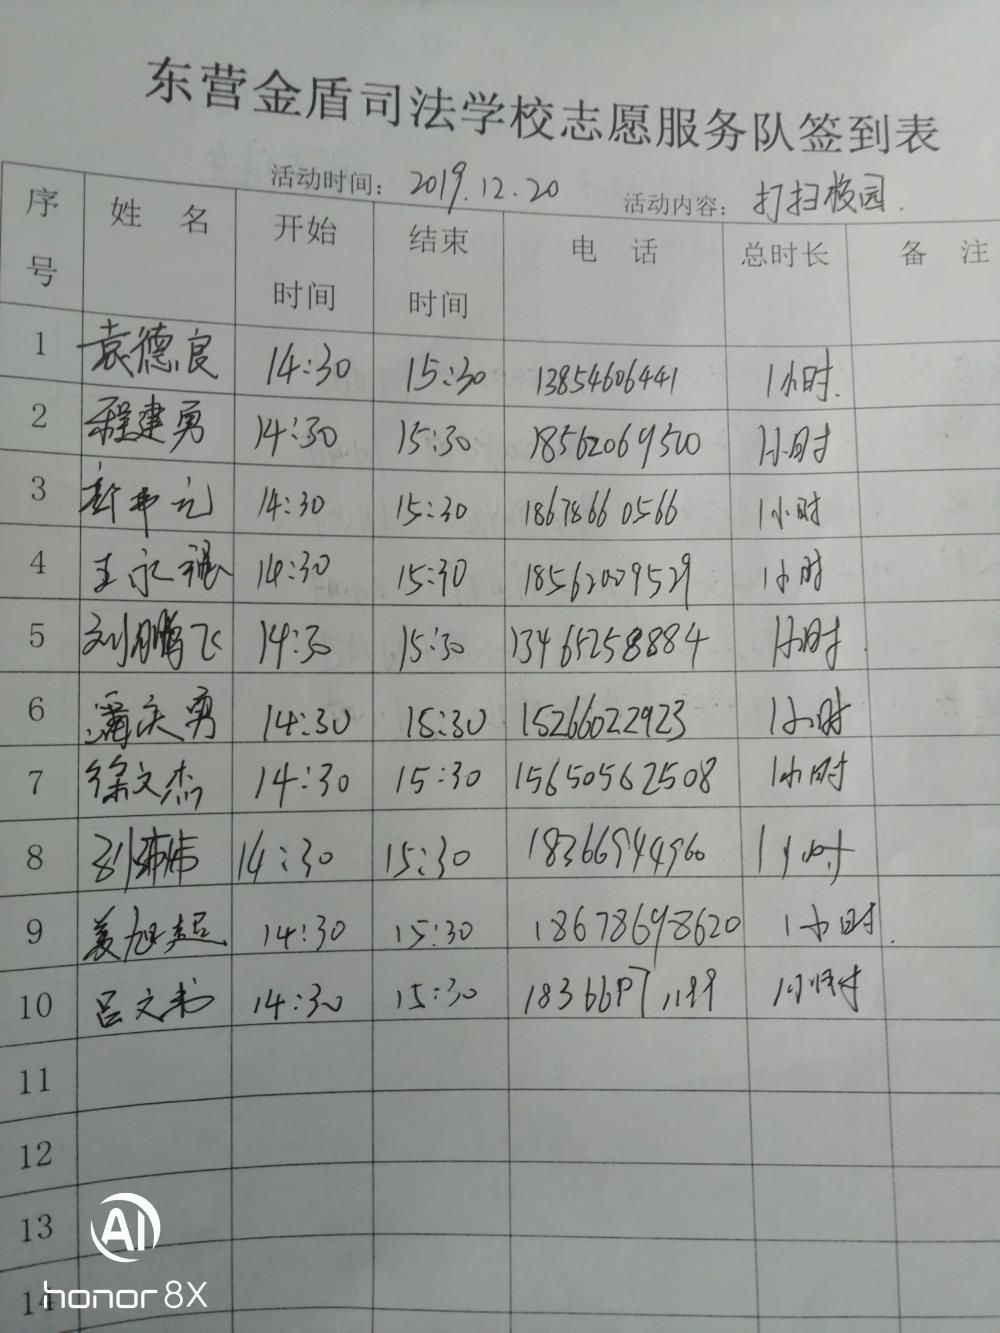 东营金盾司法学校志愿服务队签到表
活动时间: 2019.12.20 活动内容: 打扫校园.
序号 姓名 开始时间 结束时间 电话 总时长 备注
1 袁德良 14:30 15:30 13854606441 1小时.
2 程建勇 14:30 15:30 18562069500 1小时
3 14:30 15:30 18678660566 1小时
4 王永禄 14:30 15:30 18562009529 1小时
5 刘鹏飞 14:30 15:30 13465258884 1小时.
6 蒲庆勇 14:30 15:30 15266022923 1小时
7 徐文杰 14:30 15:30 15650562508 1小时
8 14:30 15:30 18366944960 1小时
9 姜旭超 14:30 15:30 18678698620 1小时.
10 吕文书 14:30 15:30 1小时
11
12
13
14
AI
honor 8X